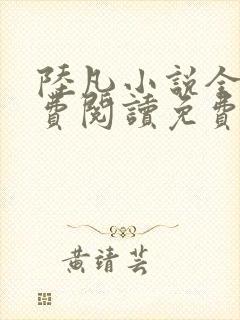 陸凡小說全
費閱讀免費
黃靖芸